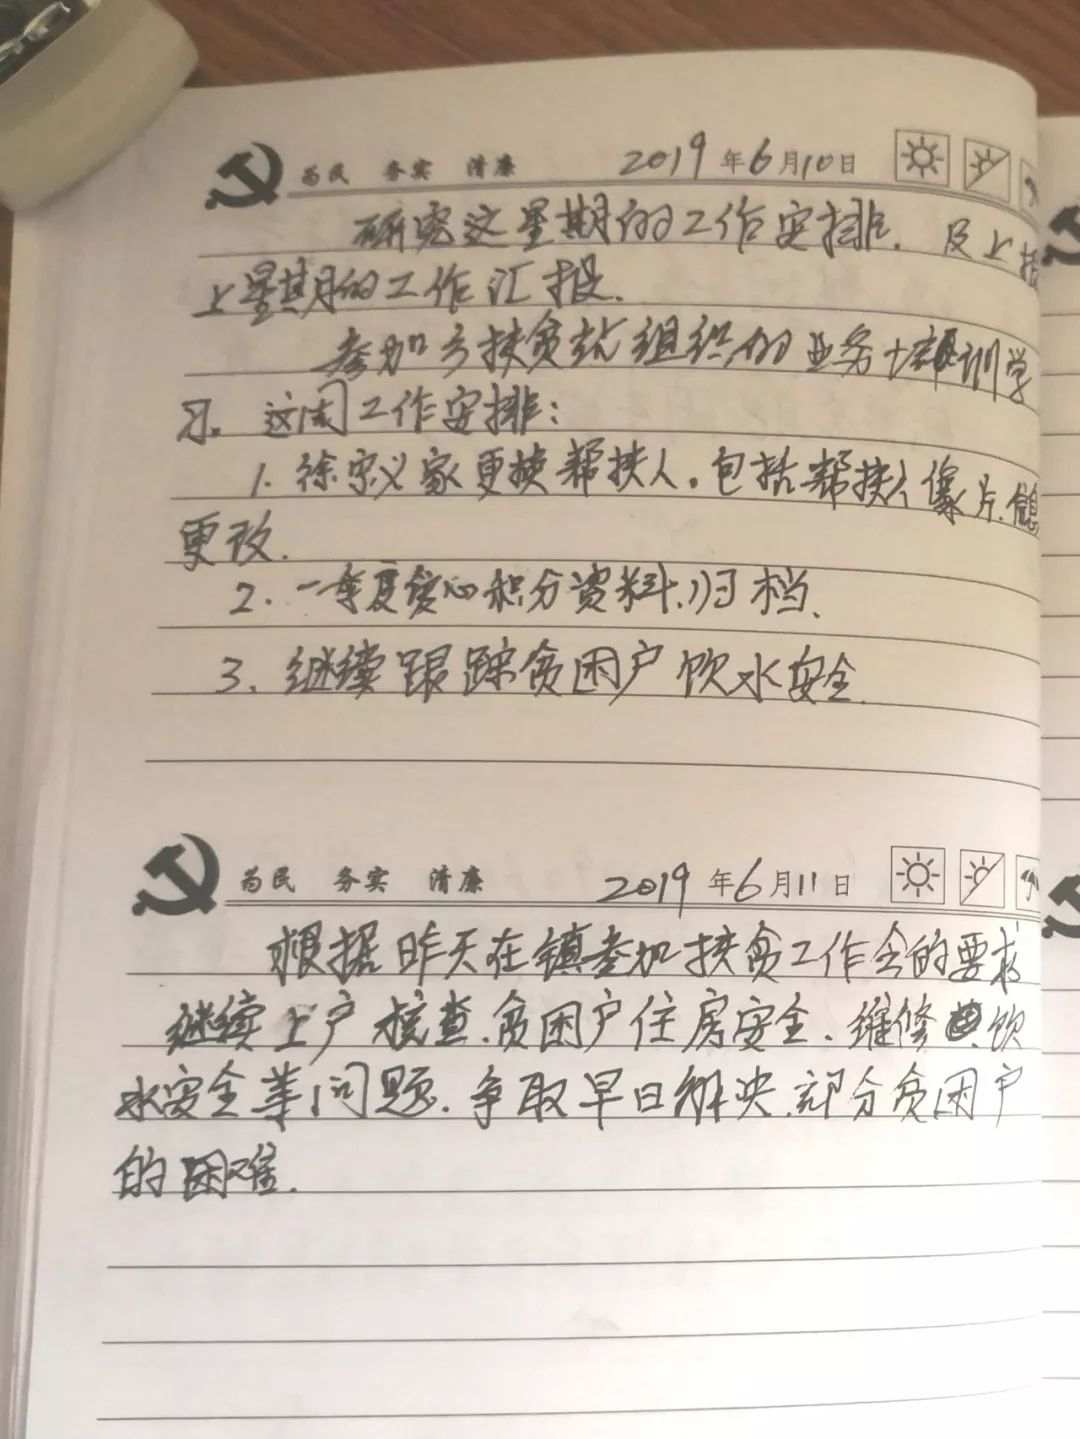 为民 务实 清廉 2019年6月10日
研究这星期的工作安排.及上报
上星期的工作汇报.
参加乡扶贫站组织的业务培训学
习。这周工作安排:
1.徐宗义家更换帮扶人。包括帮扶人像片.信息
更改.
2.一季度爱心积分资料.归档.
3.继续跟踪贫困户饮水安全.
为民 务实 清廉 2019年6月11日
根据昨天在镇参加扶贫工作会的要求
继续上户核查.贫困户住房安全.维修.饮
水安全等问题.争取早日解决.部分贫困户
的困难.